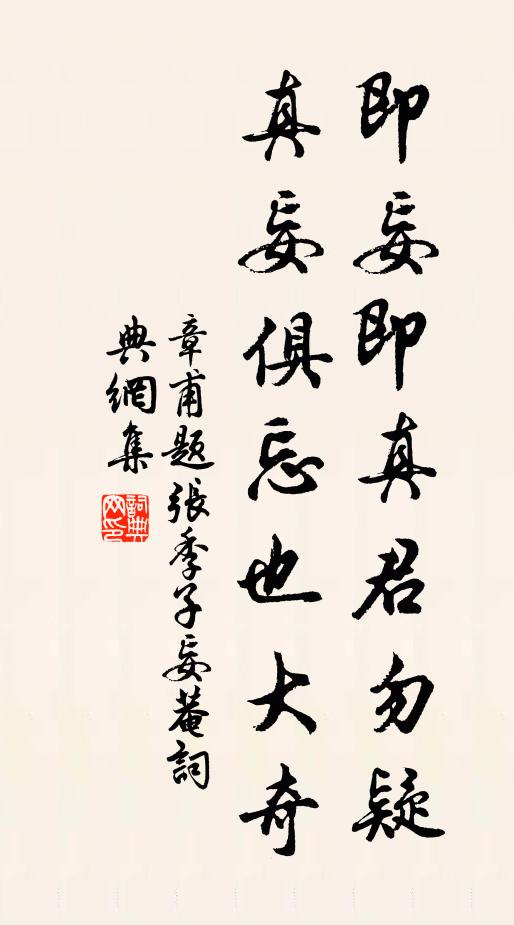 即妄即真君勿疑
真妄俱忘也大奇
章甫題張季子妄菴詞
典網集
詞典网印